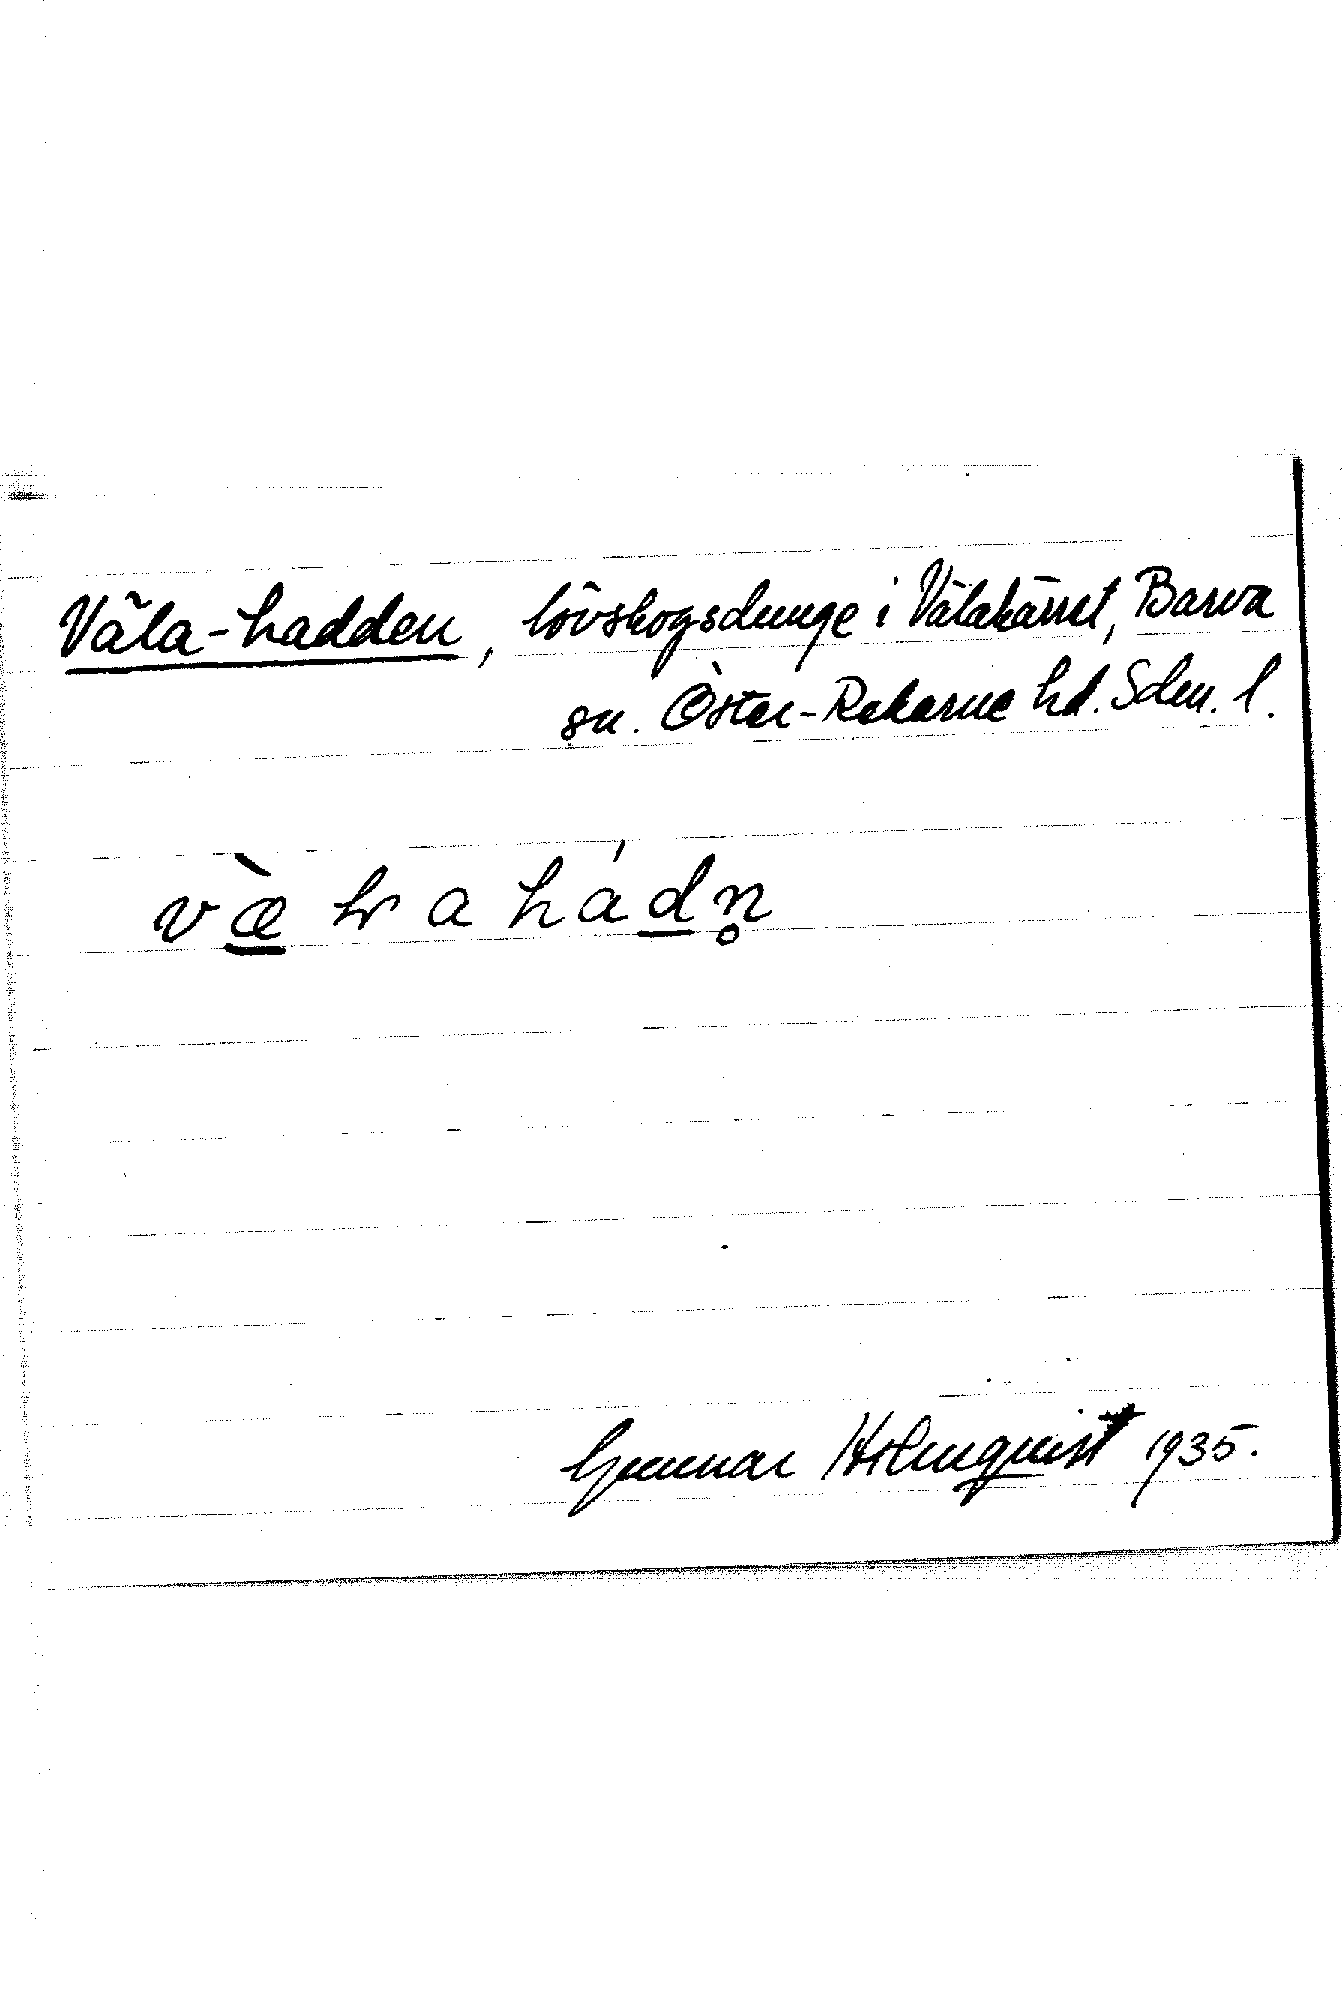 Väla-hadden, lövskogsdunge i Välakärret, Barva
sn. Öster-Rekarne hd. Sdm. l.
Gunnar Holmquist 1935.